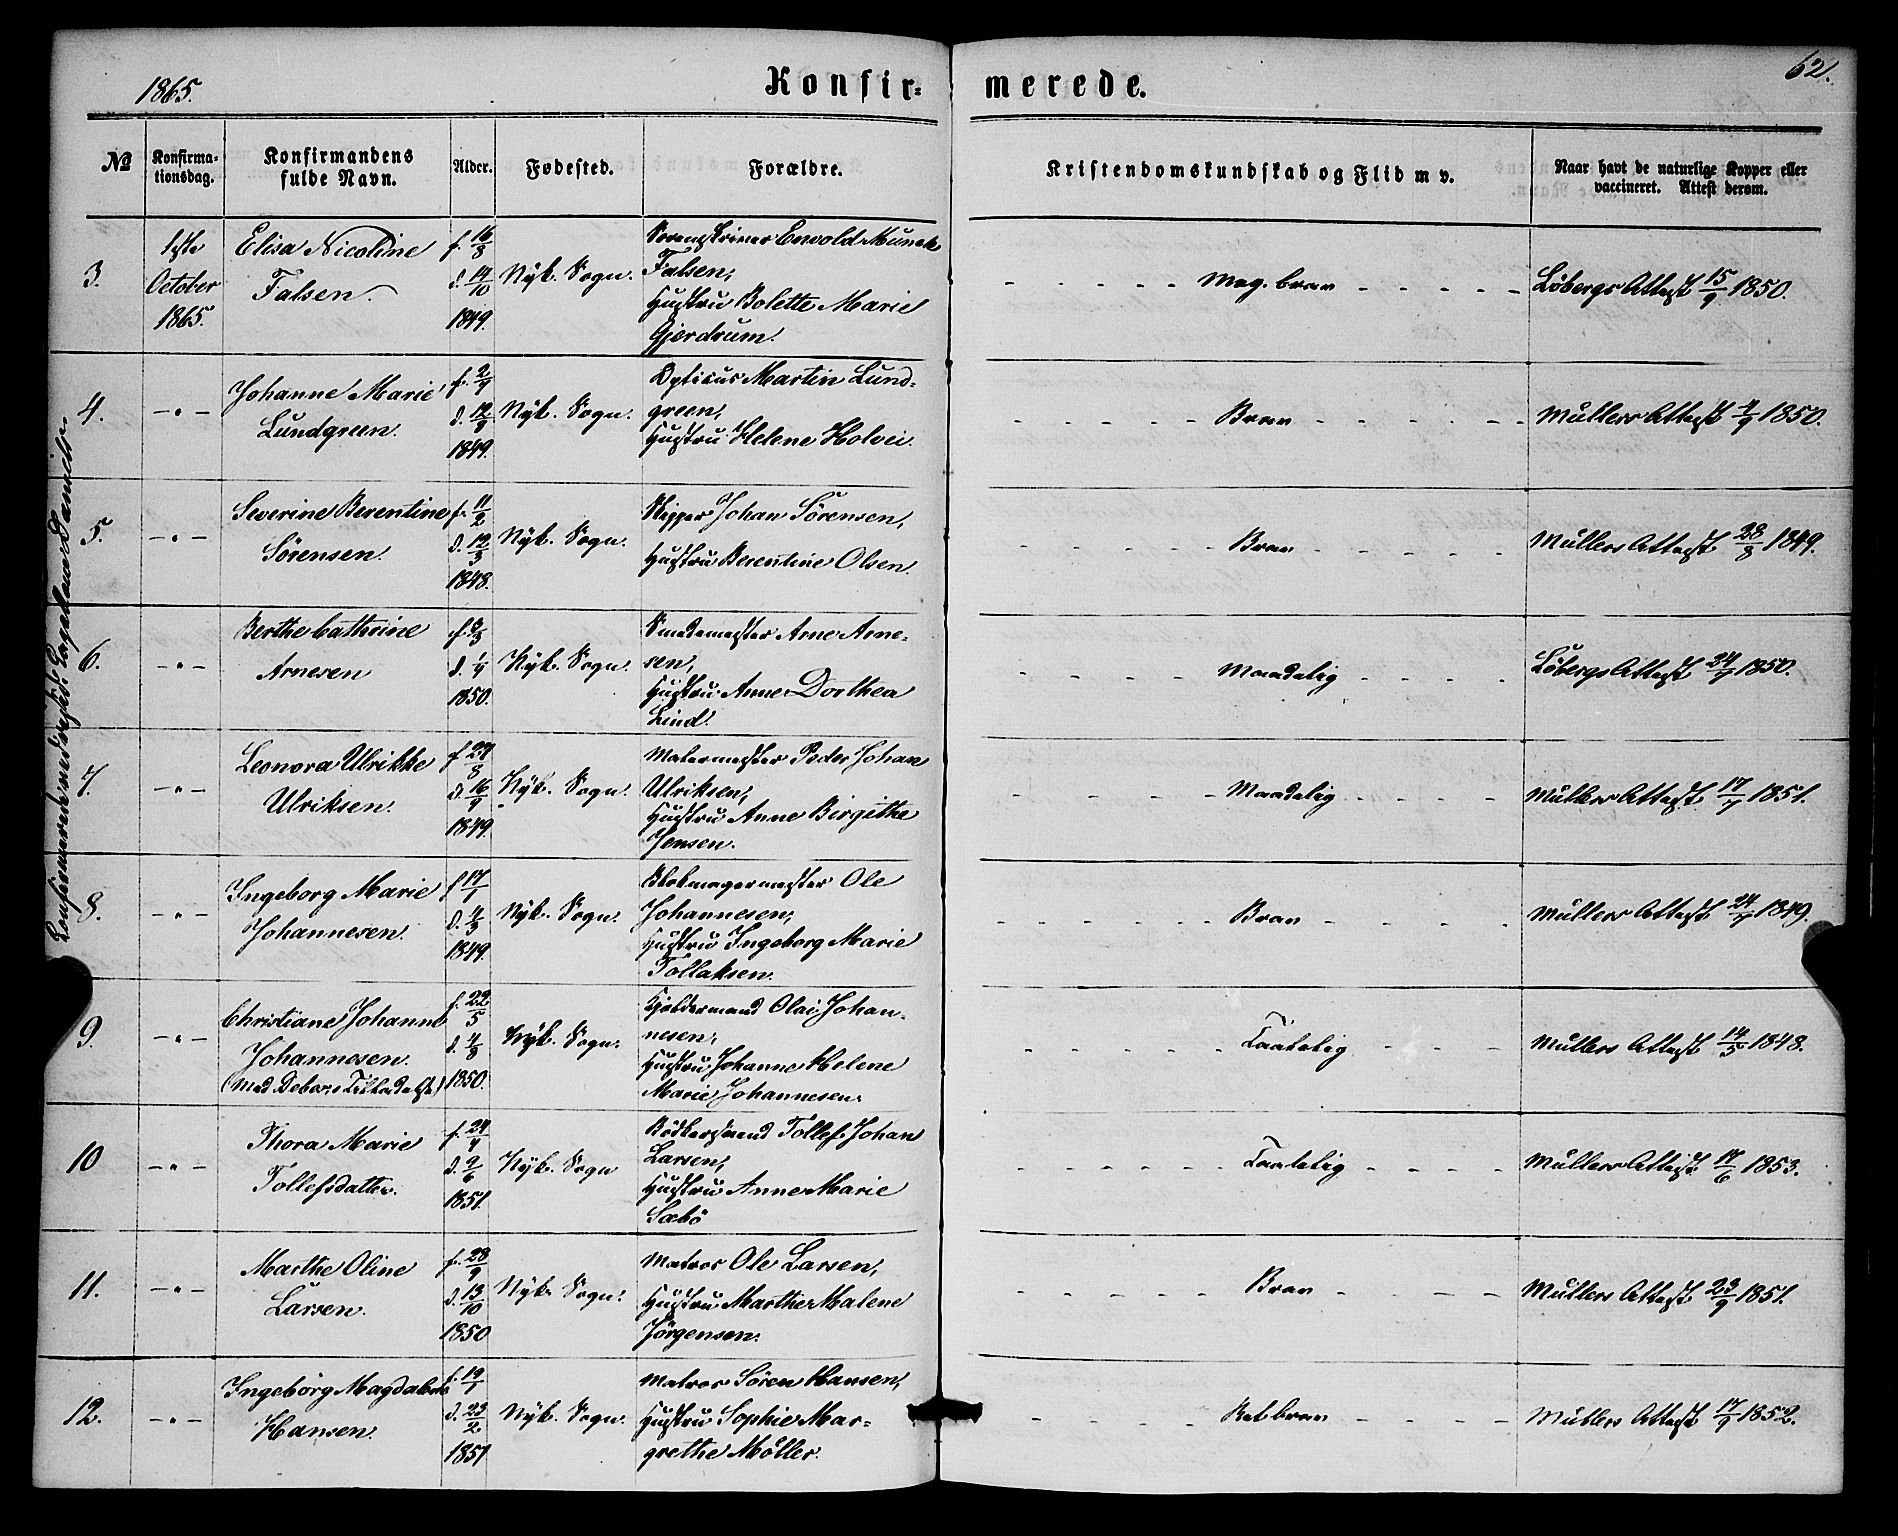 1865.
Konfir-
merede.
62.
No
Konfirma-
tionsdag.
Konfirmandens
fulde Navn.
Alder.
Fødested.
Forældre.
Kristendomskundskab og Flid m v.
Naar havt de naturlige Kopper eller
vaccineret. Attest derom.
3.
1ste
October
1865.
Elisa Nicoline
Falsen.
f. 16/8
d. 14/10
1849.
Nÿk. Sogn.
Sorenskriver Envold Munch
Falsen,
Hustru Bolette Marie
Gjerdrum.
Meg. brav
Löbergs Attest 15/9 1850.
4.
-„-
Johanne Marie
Lundgreen.
f. 2/9
d. 12/9
1849.
Nÿk. Sogn.
Opticus Martin Lund-
green,
Hustru Helene Holvei.
Brav
Müllers Attest 4/9 1850.
5.
-„-
Severine Berentine
Sörensen.
f. 11/2
d. 12/3
1848.
Nÿk. Sogn.
Skipper Johan Sörensen,
Hustru Berentine Olsen.
Brav
Müllers Attest 28/8 1849.
6.
-„-
Berthe Cathrine
Arnesen
f. 3/3
d. 1/4
1850.
Nÿk. Sogn.
Smedemester Arne Arne-
sen,
Hustru Anne Dorthea
Lind.
Maadelig
Löbergs Attest 24/7 1850.
7.
-„-
Leonora Ulrikke
Ulriksen.
f. 27/8
d. 16/9
1849.
Nÿk. Sogn.
Malermester Peder Johan
Ulriksen,
Hustru Anne Birgithe
Jensen.
Maadelig
Müllers Attest 17/7 1851.
8.
-„-
Ingeborg Marie
Johannesen.
f. 17/1
d. 4/3
1849.
Nÿk. Sogn.
Blokmagermester Ole
Johannesen,
Hustru Ingeborg Marie
Tollaksen.
Brav
Müllers Attest 24/7 1849.
9.
-„-
Christiane Johanne
Johannesen.
f. 22/5
d. 4/8
1850.
Nÿk. Sogn.
Olai Johan-
nesen,
Hustru Johanne Helene
Marie Johannesen.
Taalelig
Müllers Attest 14/5 1848.
10
-„-
Thora Marie
Tollefsdatter.
f. 24/4
d. 9/6
1851.
Nÿk. Sogn
Bödkersvend Tollef Johan
Larsen,
Hustru Anne Marie
Sæbö
Taalelig
Müllers Attest 17/6 1853.
11.
-„-
Marthe Oline
Larsen.
f. 28/9
d. 13/10
1850
Nÿk. Sogn.
Matros Ole Larsen,
Hustru Marthe Malene
Jörgensen.
Brav
Müllers Attest 23/9 1851.
12.
-„-
Ingeborg Magdalene
Hansen.
f. 19/1
d. 23/2
1851
Nÿk. Sogn.
Matros Sören Hansen,
Hustru Sophie Mar-
grethe Möller.
Ret brav
Müllers Attest 17/9 1852.